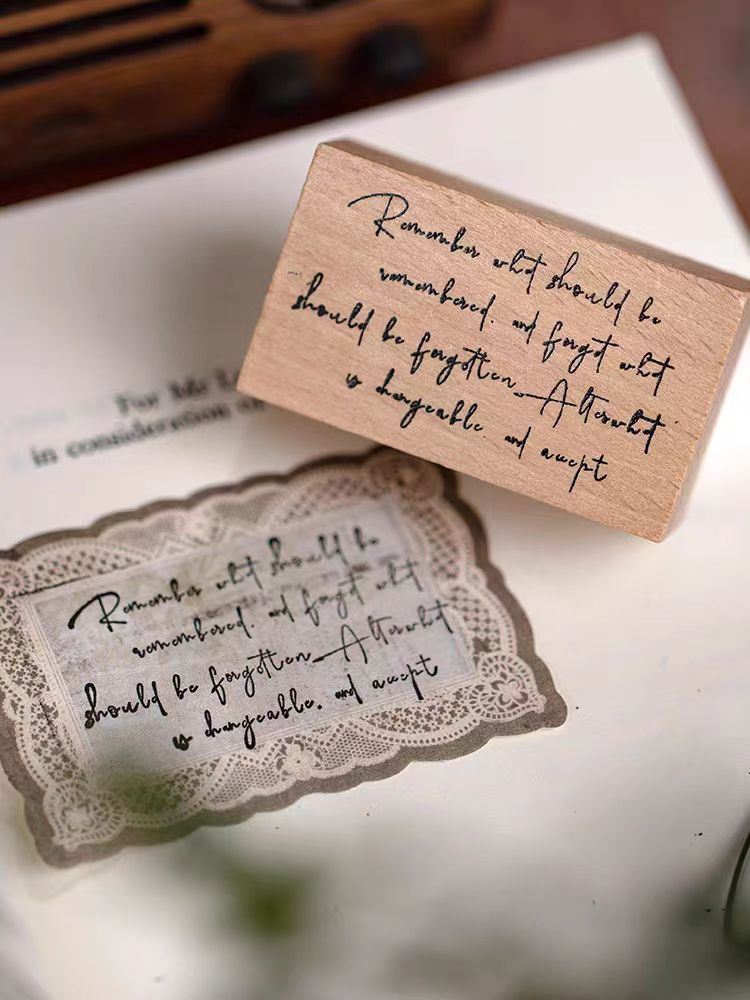 Remember what should be
remembered. and forget what
should be forgotten_Alterwhat
is changeable. and accept
For Mr
in consideration
Remember what should be
remembered. and forget what
should be forgotten_Alterwhat
is changeable. and accept